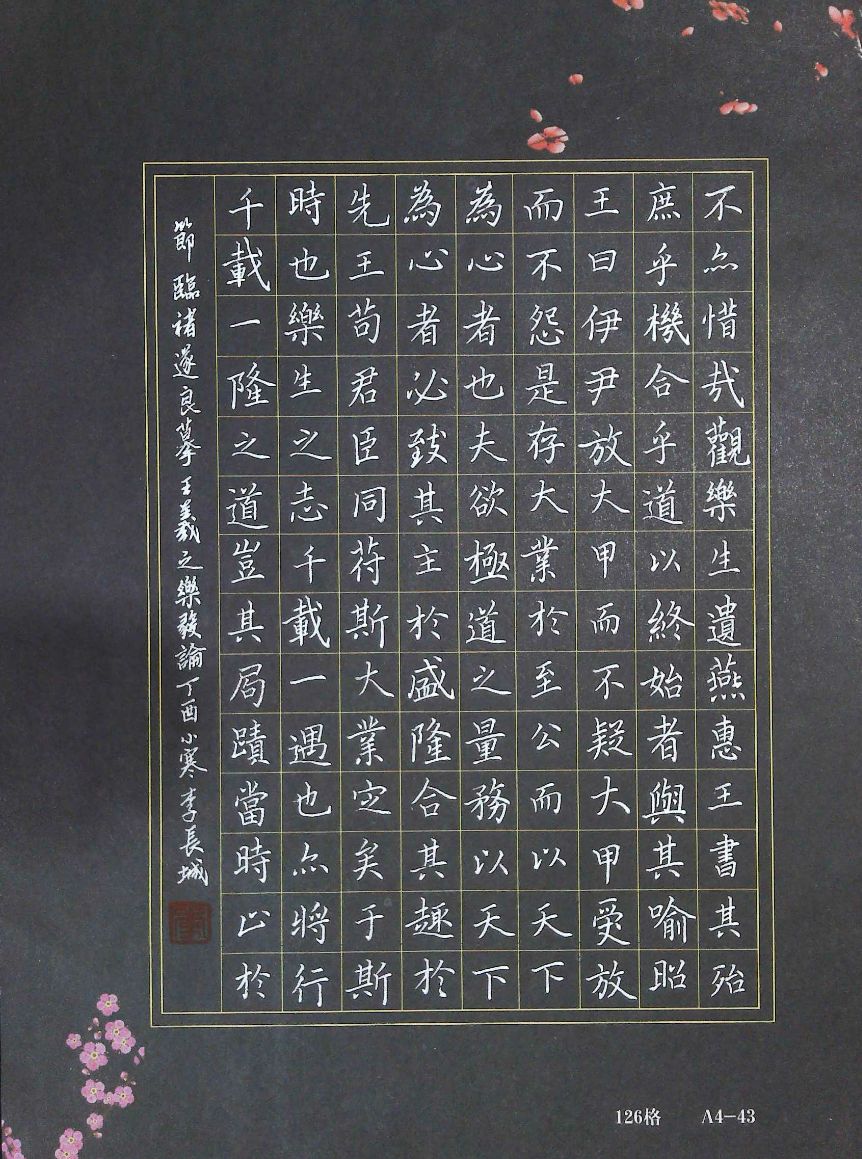 不亦惜哉觀樂生遺燕惠王書其殆
庶乎機合乎道以終始者與其喻昭
王曰伊尹放大甲而不疑大甲受放
而不怨是存大業於至公而以天下
為心者也夫欲極道之量務以天下
為心者必致其主於盛隆合其趣於
先王苟君臣同苻斯大業定矣于斯
時也樂生之志千載一遇也亦將行
千載一隆之道豈其局蹟當時止於
節臨褚遂良摹王羲之樂發論丁酉小寒李長城
126格 A4-43